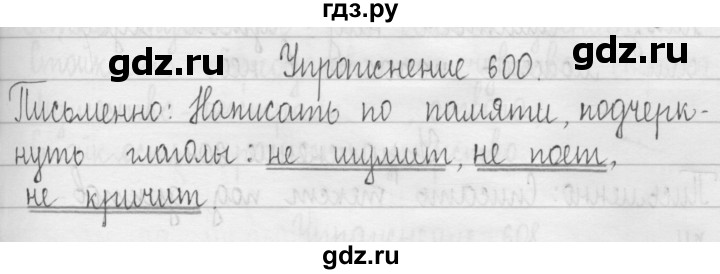 гдз.ру
gdz.ru
gdz.ru
Упражнение 600.
Письменно: Написать по памяти, подчерк-
нуть глаголы: не шумит, не поет,
не кричит.
gdz.ru
gdz.ru